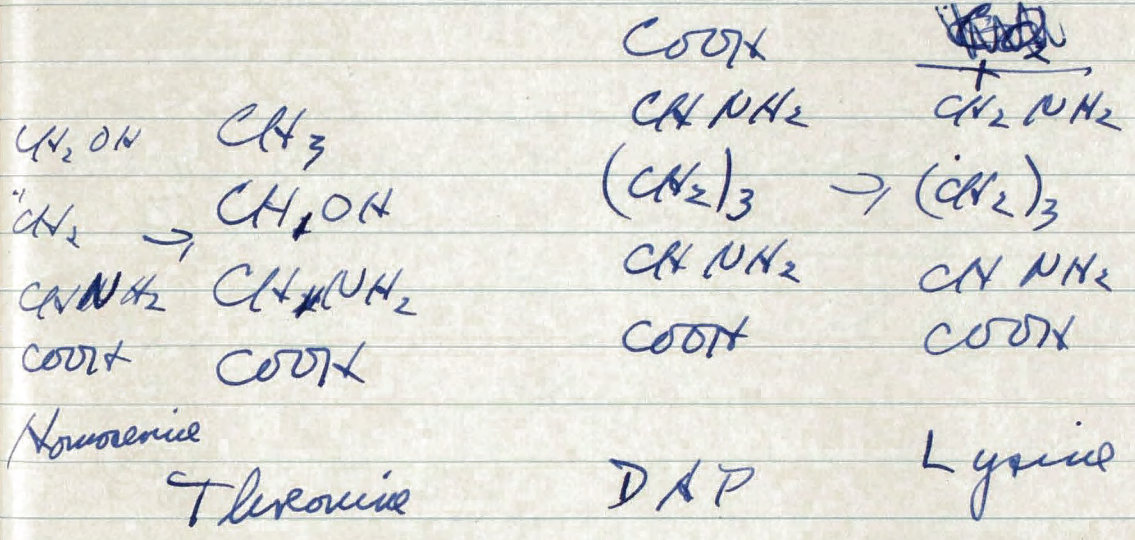 CH2 OH
CH2 →
CHNH2
COOH
Homoserine
CH3
CH OH
CH NH2
COOH
Threonine
COOH
CH NH2
(CH2)3 →
CH NH2
COOH
DAP
CH2 NH2
(CH2)3
CH NH2
COOH
Lysine